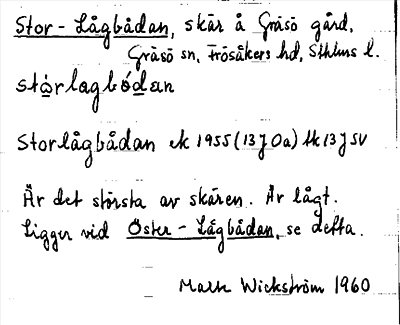 Stor-Lågbådan, skär å Gräsö gård,
Gräsö sn, Frösåkers hd, Sthlms l.
stòrlagbódan
Storlågbådan ek 1955 (13 J Oa) tk 13 J SV
Är det största av skären. Är lågt.
Ligger vid Öster-Lågbådan, se detta.
Wickström 1960